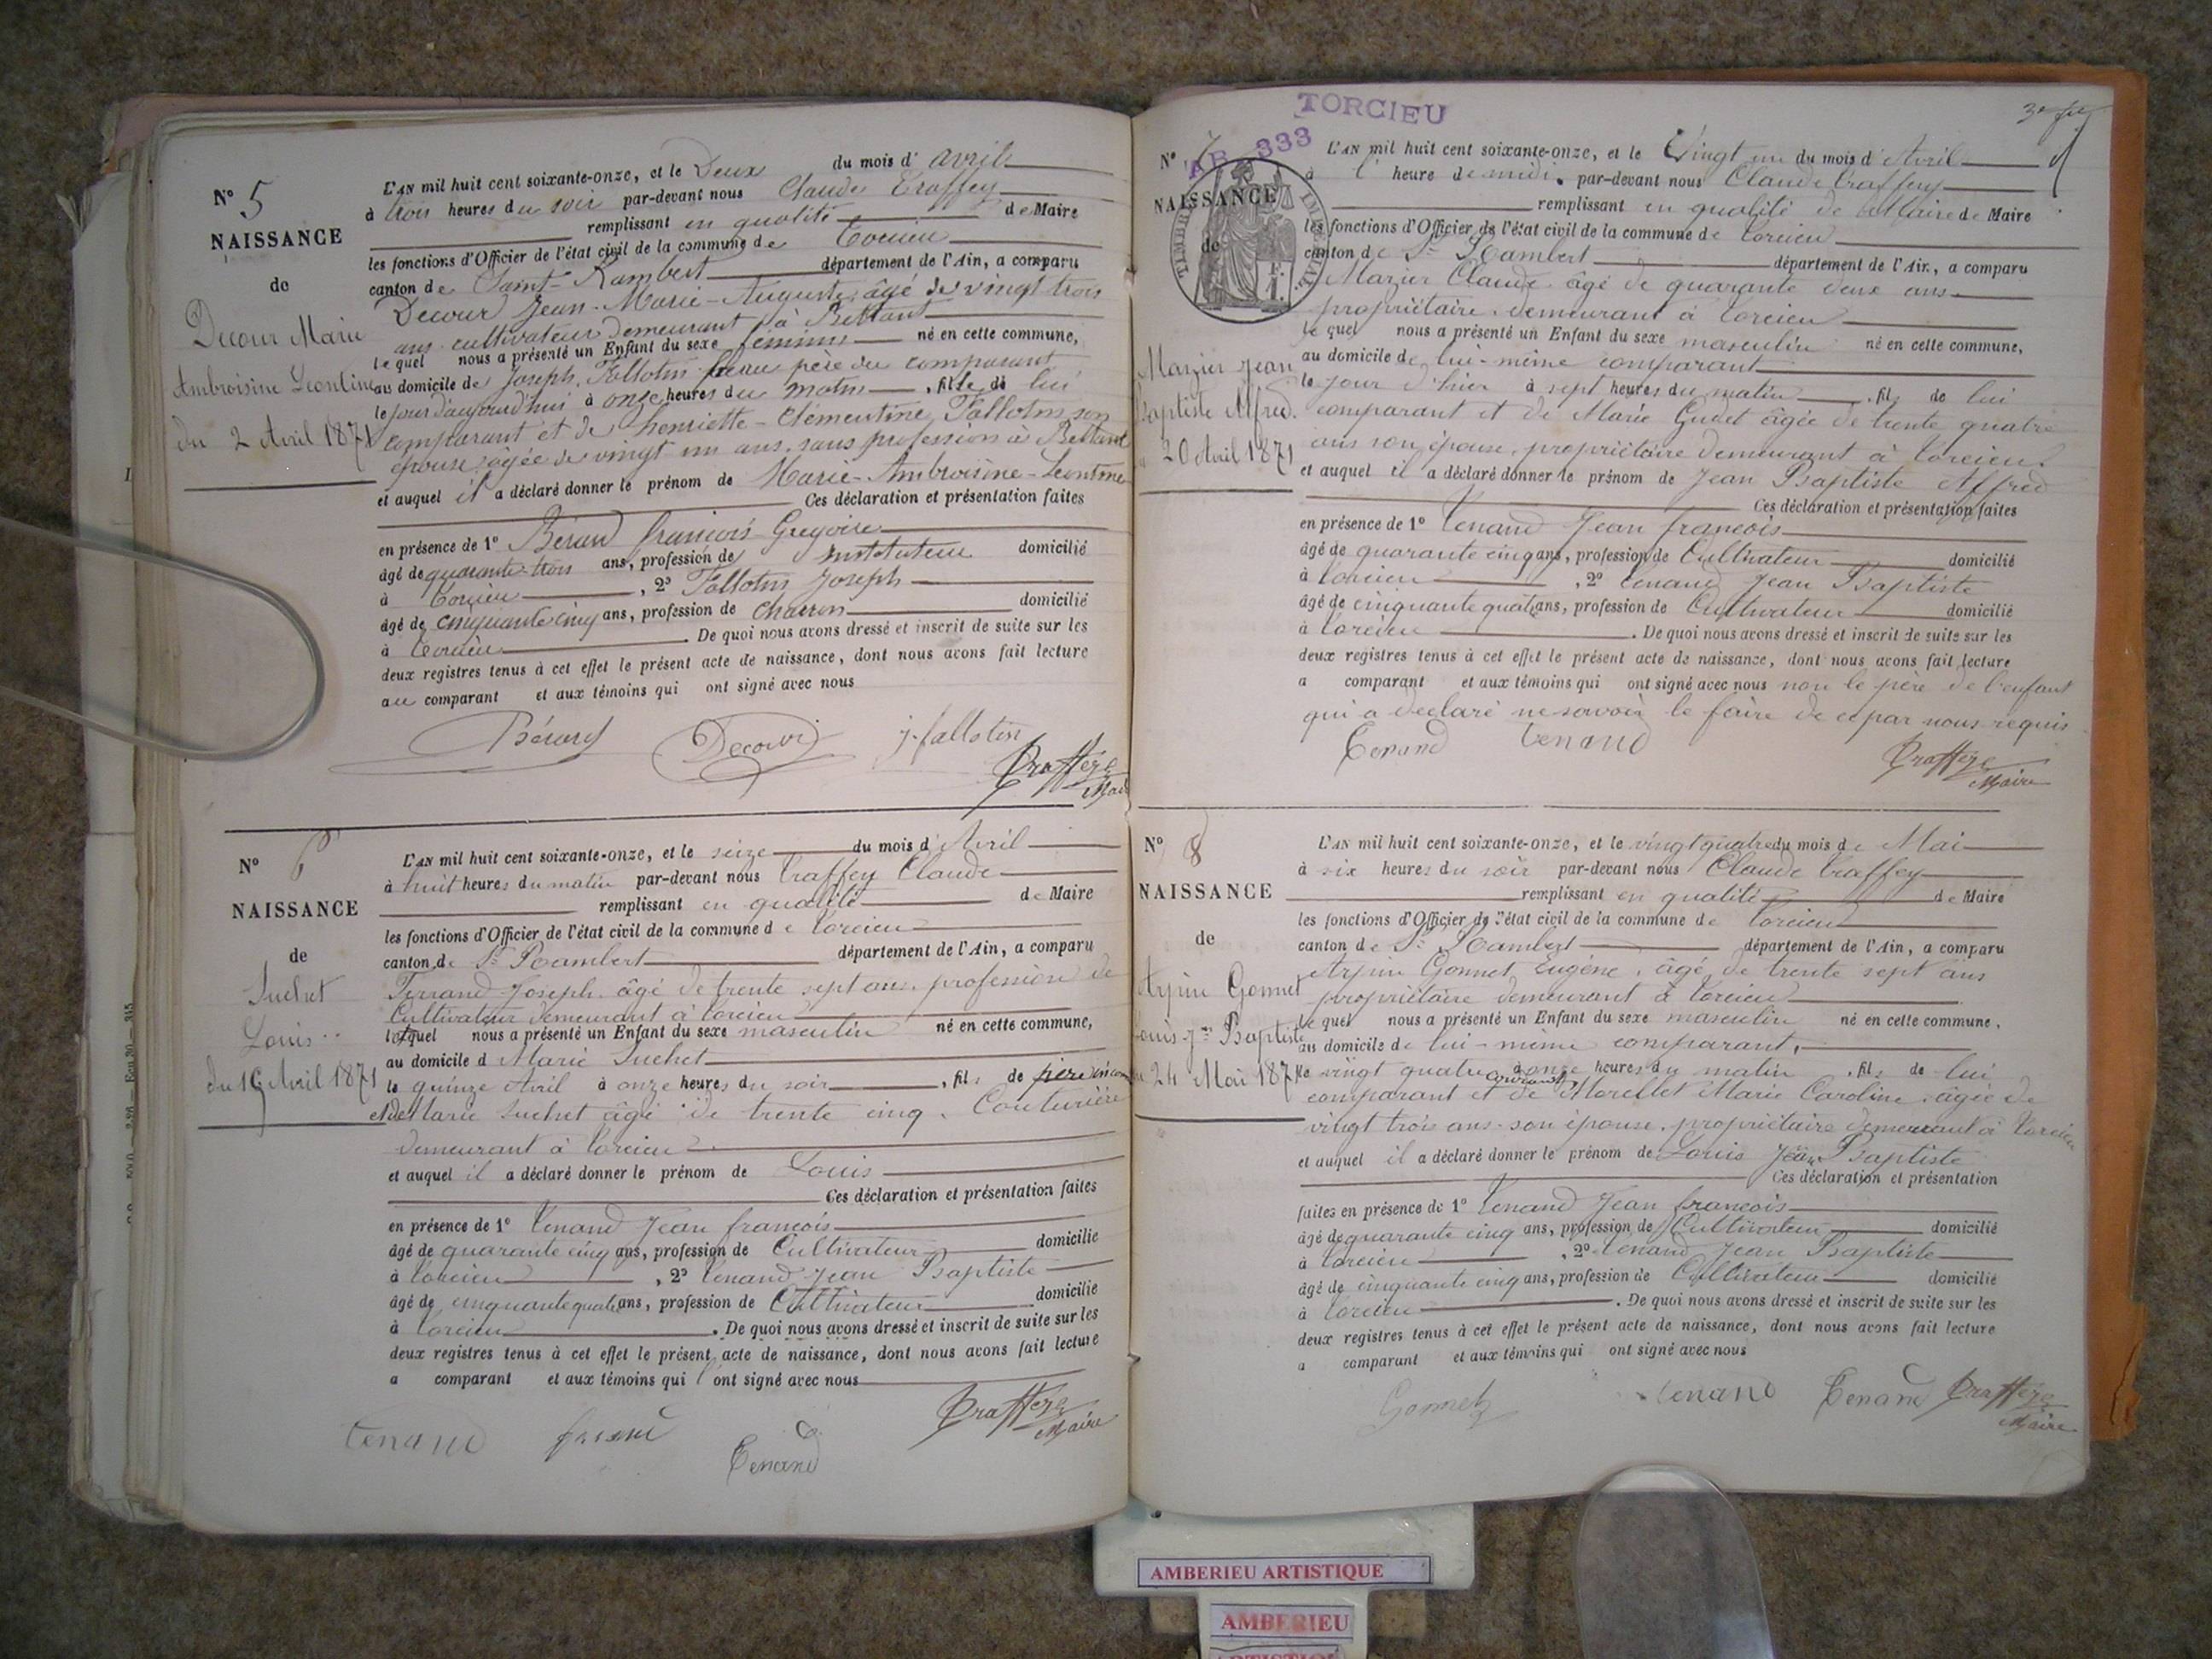 N° 5
NAISSANCE
de
Decour Marie
Ambroisine Leontine
du 2 Avril 1871
L'AN mil huit cent soixante-onze, et le Deux du mois d' avril
à trois heures du soir par-devant nous Claude Traffey
remplissant en qualité de Maire
les fonctions d'Officier de l'état civil de la commune de Torcieu
canton de Saint-Rambert département de l'Ain, a comparu
Decour Jean-Marie-Auguste, âgé de vingt trois
ans cultivateur demeurant à Bettant
lequel nous a présenté un Enfant du sexe feminin né en cette commune,
au domicile de Joseph Tallotin beau père du comparant
le jour d'aujourd'hui à onze heures du matin, fille de lui
comparant et de henriette-Clémentine Tallotin son
épouse, âgée de vingt un ans, sans profession à Bettant
et auquel il a déclaré donner le prénom de Marie-Ambroisine-Leontine
Ces déclaration et présentation faites
en présence de 1° Bérard françois Gregoire
âgé de quarante-trois ans, profession de instituteur domicilié
à Torcieu, 2° Tallotin Joseph
âgé de cinquante cinq ans, profession de charron domicilié
à Torcieu. De quoi nous avons dressé et inscrit de suite sur les
deux registres tenus à cet effet le présent acte de naissance, dont nous avons fait lecture
au comparant et aux témoins qui ont signé avec nous
Bérard Decour j. tallotin
Traffeye
Maire
N° 6
NAISSANCE
de
Suchet
Louis
du 15 Avril 1871
L'AN mil huit cent soixante-onze, et le seize du mois d'Avril
à huit heures du matin par-devant nous Traffey Claude
remplissant en qualité de Maire
les fonctions d'Officier de l'état civil de la commune de Torcieu
canton de St Rambert département de l'Ain, a comparu
Ferrand Joseph âgé de trente sept ans profession de
Cultivateur demeurant à Torcieu
lequel nous a présenté un Enfant du sexe masculin né en cette commune,
au domicile d Marie Suchet
le quinze Avril à onze heures du soir, fils de père inconnu
et de Marie Suchet âgé de trente cinq. Couturière
demeurant à Torcieu
et auquel il a déclaré donner le prénom de Louis
Ces déclaration et présentation faites
en présence de 1° Tenand Jean françois
âgé de quarante cinq ans, profession de Cultivateur domicilié
à Torcieu, 2° Tenand Jean Baptiste
âgé de cinquante quatre ans, profession de Cultivateur domicilié
à Torcieu. De quoi nous avons dressé et inscrit de suite sur les
deux registres tenus à cet effet le présent acte de naissance, dont nous avons fait lecture
a comparant et aux témoins qui ont signé avec nous
Tenand Tenand
Traffeye
Maire
TORCIEU
AB 333
N° 7
NAISSANCE
de
Mazier Jean
Baptiste Alfred.
20 Avril 1871
L'AN mil huit cent soixante-onze, et le Vingt un du mois d'Avril
à 1 heure de midi. par-devant nous Claude Traffey
remplissant en qualité de Maire de Maire
les fonctions d'Officier de l'état civil de la commune de Torcieu
canton de St Rambert département de l'Ain, a comparu
Mazier Claude âgé de quarante deux ans
propriétaire demeurant à Torcieu
lequel nous a présenté un Enfant du sexe masculin né en cette commune,
au domicile de lui-même comparant
le jour d'hier à sept heures du matin, fils de lui
comparant et de Marie Gudet âgée de trente quatre
ans son épouse, propriétaire demeurant à Torcieu
et auquel il a déclaré donner le prénom de Jean Baptiste Alfred
Ces déclaration et présentation faites
en présence de 1° Tenand Jean françois
âgé de quarante cinq ans, profession de Cultivateur domicilié
à Torcieu, 2° Tenand Jean Baptiste
âgé de cinquante quatre ans, profession de Cultivateur domicilié
à Torcieu. De quoi nous avons dressé et inscrit de suite sur les
deux registres tenus à cet effet le présent acte de naissance, dont nous avons fait lecture
a comparant et aux témoins qui ont signé avec nous non le père de l'enfant
qui a declaré ne savoir le faire de ce par nous requis
Tenand Tenand
Traffeye
Maire
N° 8
NAISSANCE
de
Arpin Gonnet
Louis Jn Baptiste
24 Mai 1871
L'AN mil huit cent soixante-onze, et le vingt quatre du mois de Mai
à six heures du soir par-devant nous Claude Traffey
remplissant en qualité de Maire
les fonctions d'Officier de l'état civil de la commune de Torcieu
canton de St Rambert département de l'Ain, a comparu
Arpin Gonnet Eugène, âgé de trente sept ans
propriétaire demeurant à Torcieu
lequel nous a présenté un Enfant du sexe masculin né en cette commune,
au domicile de lui-même comparant,
le vingt quatre courant à onze heures du matin, fils de lui
comparant et de Morellet Marie Caroline, âgée de
vingt trois ans son épouse, propriétaire demeurant à Torcieu
et auquel il a déclaré donner le prénom de Louis Jean Baptiste
Ces déclaration et présentation
faites en présence de 1° Tenand Jean françois
âgé de quarante cinq ans, profession de Cultivateur domicilié
à Torcieu, 2° Tenand Jean Baptiste
âgé de cinquante cinq ans, profession de Cultivateur domicilié
à Torcieu. De quoi nous avons dressé et inscrit de suite sur les
deux registres tenus à cet effet le présent acte de naissance, dont nous avons fait lecture
a comparant et aux témoins qui ont signé avec nous
Gonnet Tenand Tenand Traffeye
Maire
AMBERIEU ARTISTIQUE
AMBERIEU
ARTISTIQUE